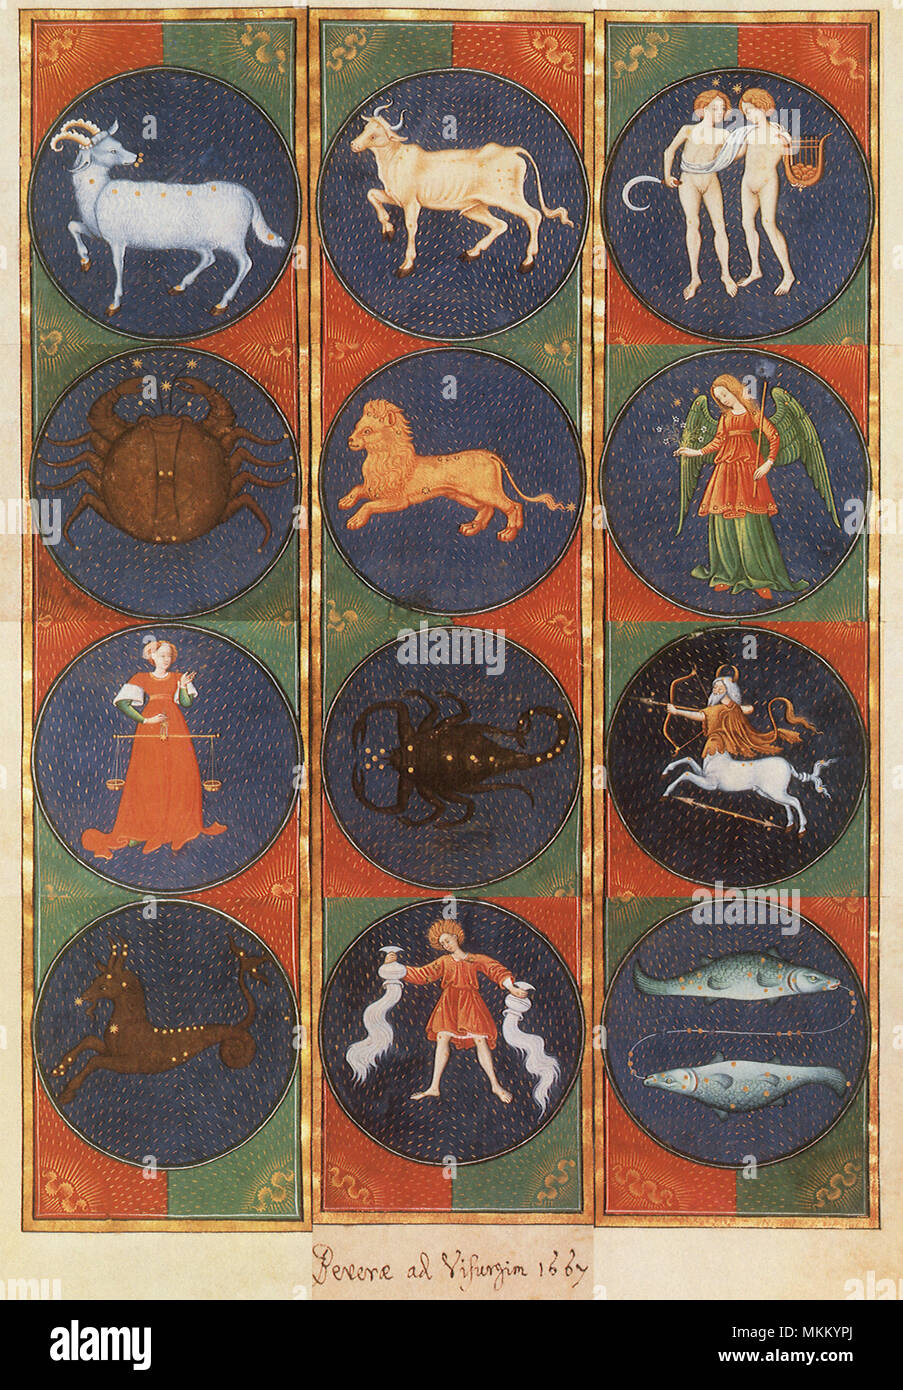 Peveræ ad Visurgim 1667
alamy
Image ID: MKKYPJ
www.alamy.com